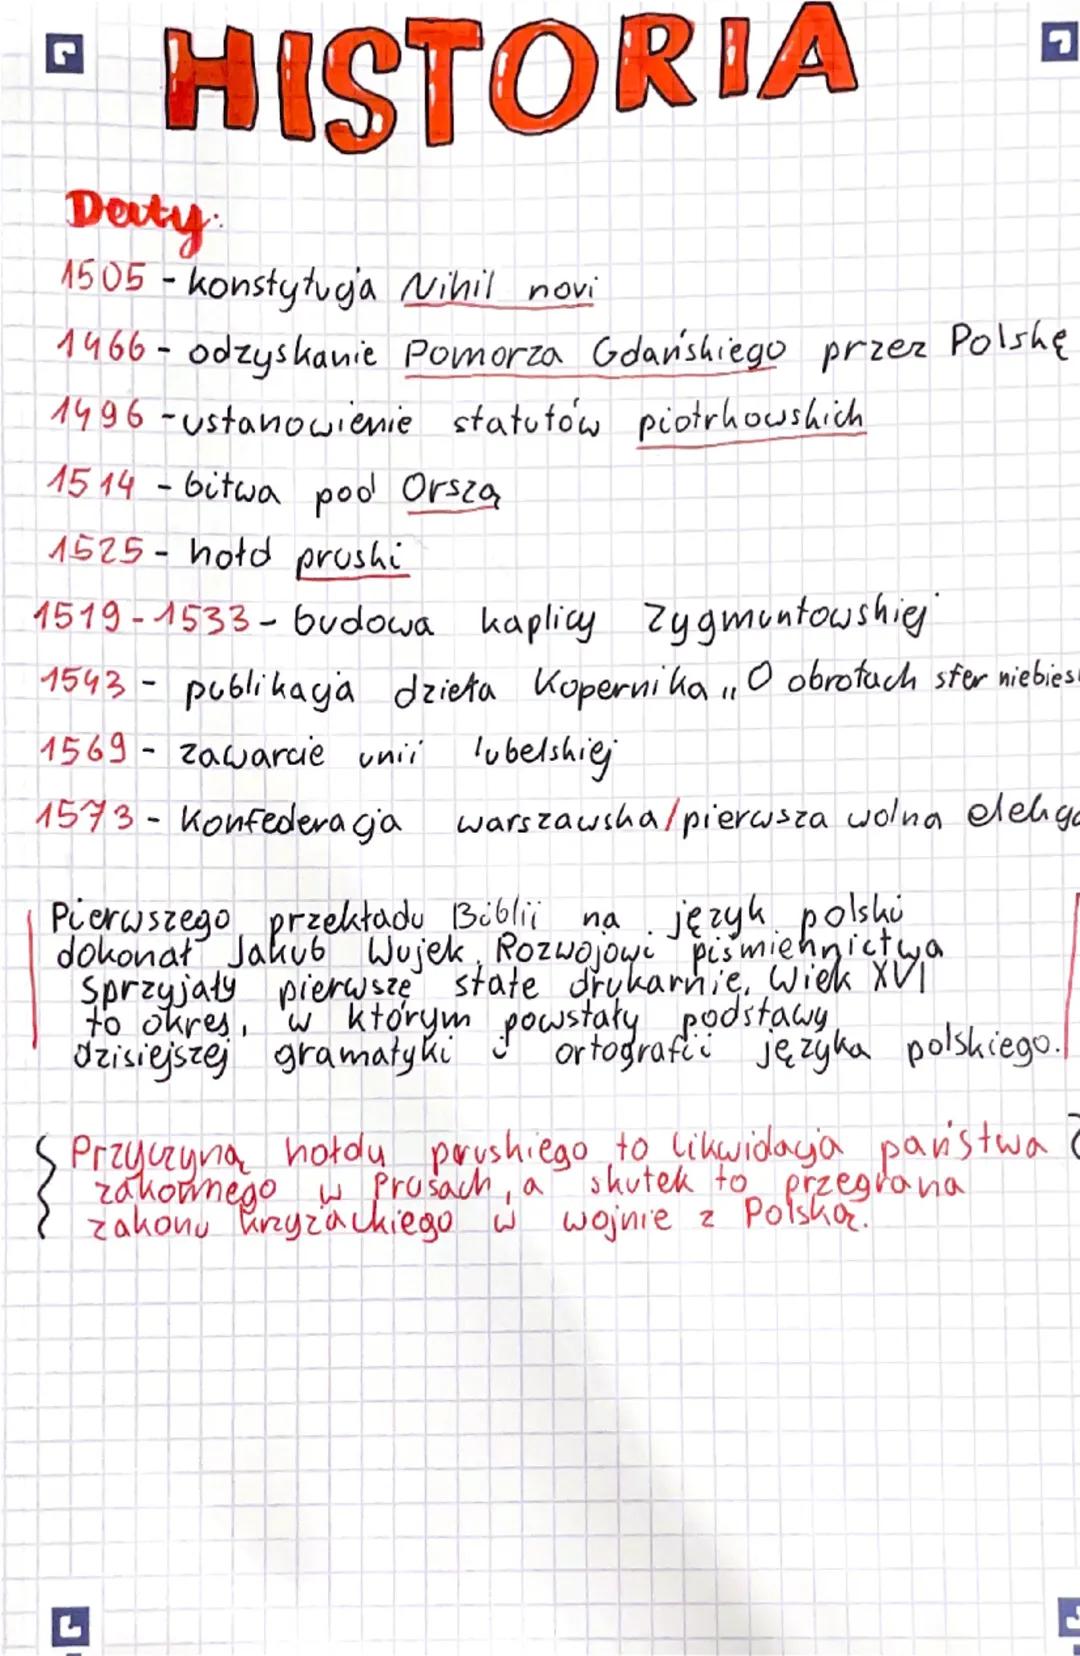 HISTORIA
Daty:
1505 - konstytucja Nihil novi
1466 - odzyskanie Pomorza Gdańskiego przez Polskę
1496 - ustanowienie statutów piotrkowskich
1514 - bitwa pod Orszą
1525 - hołd pruski
1519-1533 - budowa kaplicy Zygmuntowskiej
1543 - publikacja dzieła Kopernika „O obrotach sfer niebies
1569 - zawarcie unii lubelskiej
1573 - Konfederacja warszawska/pierwsza wolna elekcja
Pierwszego przekładu Biblii na język polski
dokonał Jakub Wujek. Rozwojowi piśmiennictwa
sprzyjały pierwsze stałe drukarnie. Wiek XVI
to okres, w którym powstały podstawy
dzisiejszej gramatyki i ortografii języka polskiego.
Przyczyną hołdu pruskiego to likwidacja państwa
zakonnego w Prusach, a skutek to przegrana
zakonu krzyżackiego w wojnie z Polską.